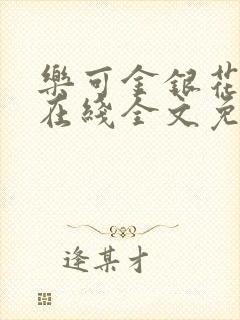 樂可金銀花
在綫全文免
逢某才